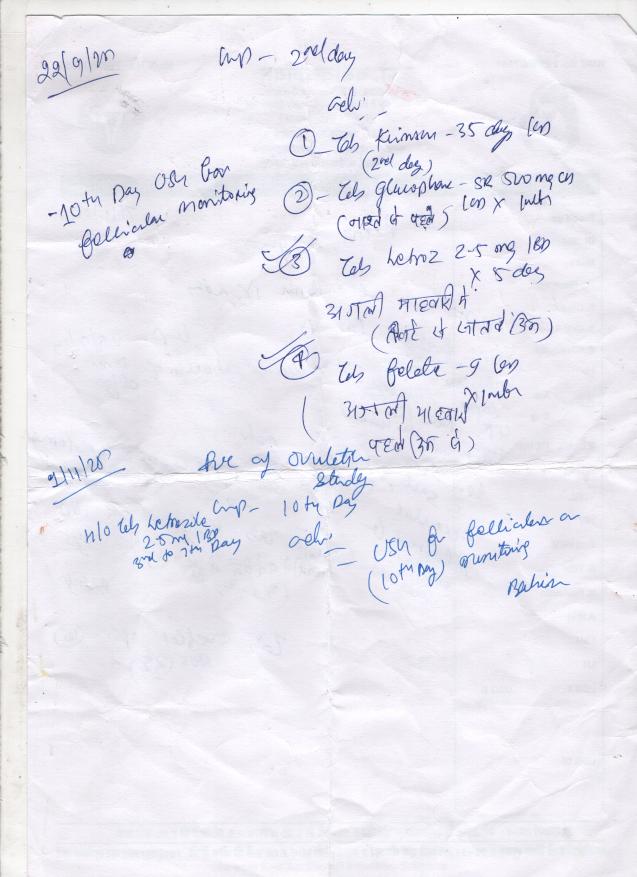 22/9/20
LMP - 2nd day
Adv:-
① Tab Krimson - 35 days
(2nd day)
- 10th Day USG for
follicular monitoring
② - Tab Glucophage - SR 500 mg
(नाश्ते से पहले) X 1mth
③ Tab Letroz 2.5 mg 1BD
X 5 day
अगली माहवारी में
(तीसरे से सातवें दिन)
④ Tab folate - 9
X 1mth
अगली माहवारी
पहले दिन से)
1/11/20
for ovulation
study
LMP - 10th Day
H/O Tab Letrozole
2.5 mg 1BD
3rd to 7th Day
Adv:-
USG for follicular
(10th Day) monitoring